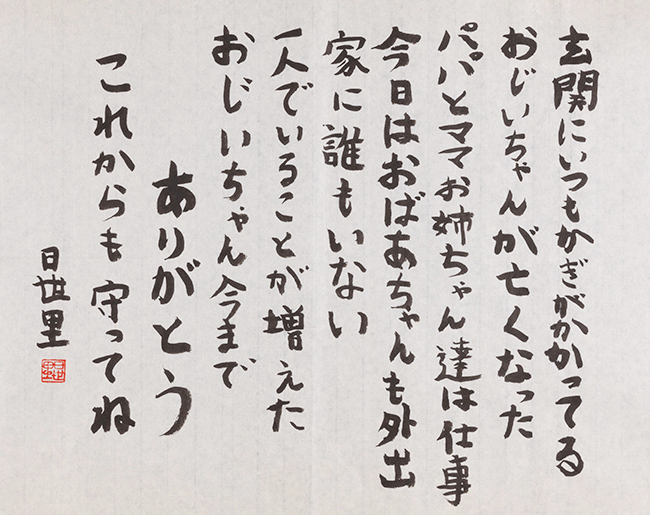 玄関にいつもかぎがかかってる
おじいちゃんが亡くなった
パパとママお姉ちゃん達は仕事
今日はおばあちゃんも外出
家に誰もいない
一人でいることが増えた
おじいちゃん今まで
ありがとう
これからも守ってね
日世里